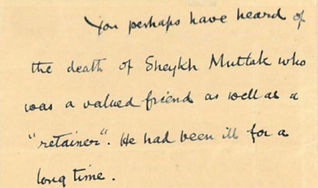 You perhaps have heard of
the death of Sheykh Muttak who
was a valued friend as well as a
"retainer". He had been ill for a
long time.